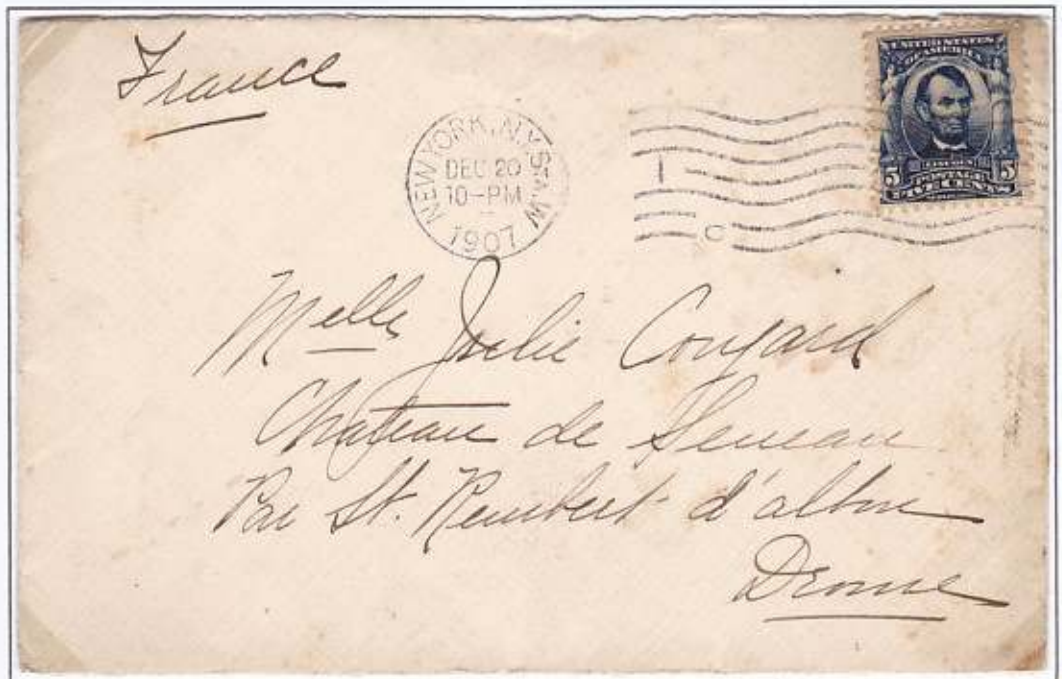 France
NEW YORK, N.Y. STA. W
DEC 20
10-PM
1907
UNITED STATES
OF AMERICA
LINCOLN
5 POSTAGE 5
FIVE CENTS
1
C
Melle Julie Conjard
Chateau de
Par St. Rambert d'albon
Drome